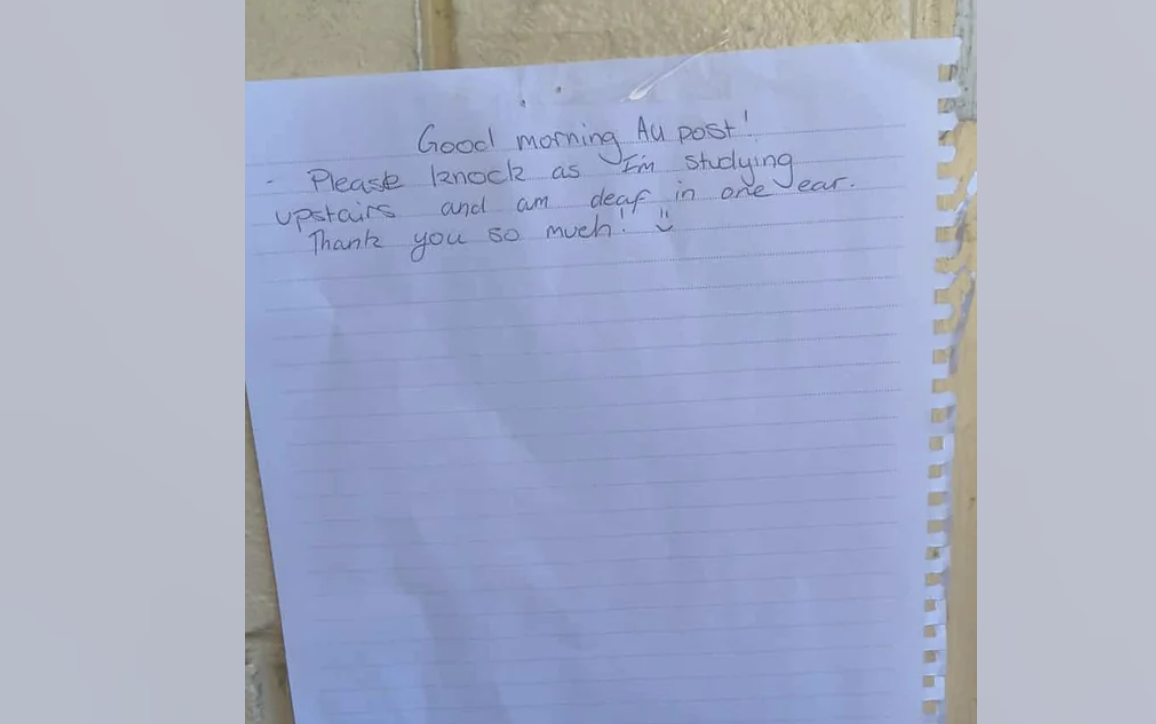 Good morning Au post!
- Please knock as I'm studying
upstairs and am deaf in one ear.
Thank you so much! :)